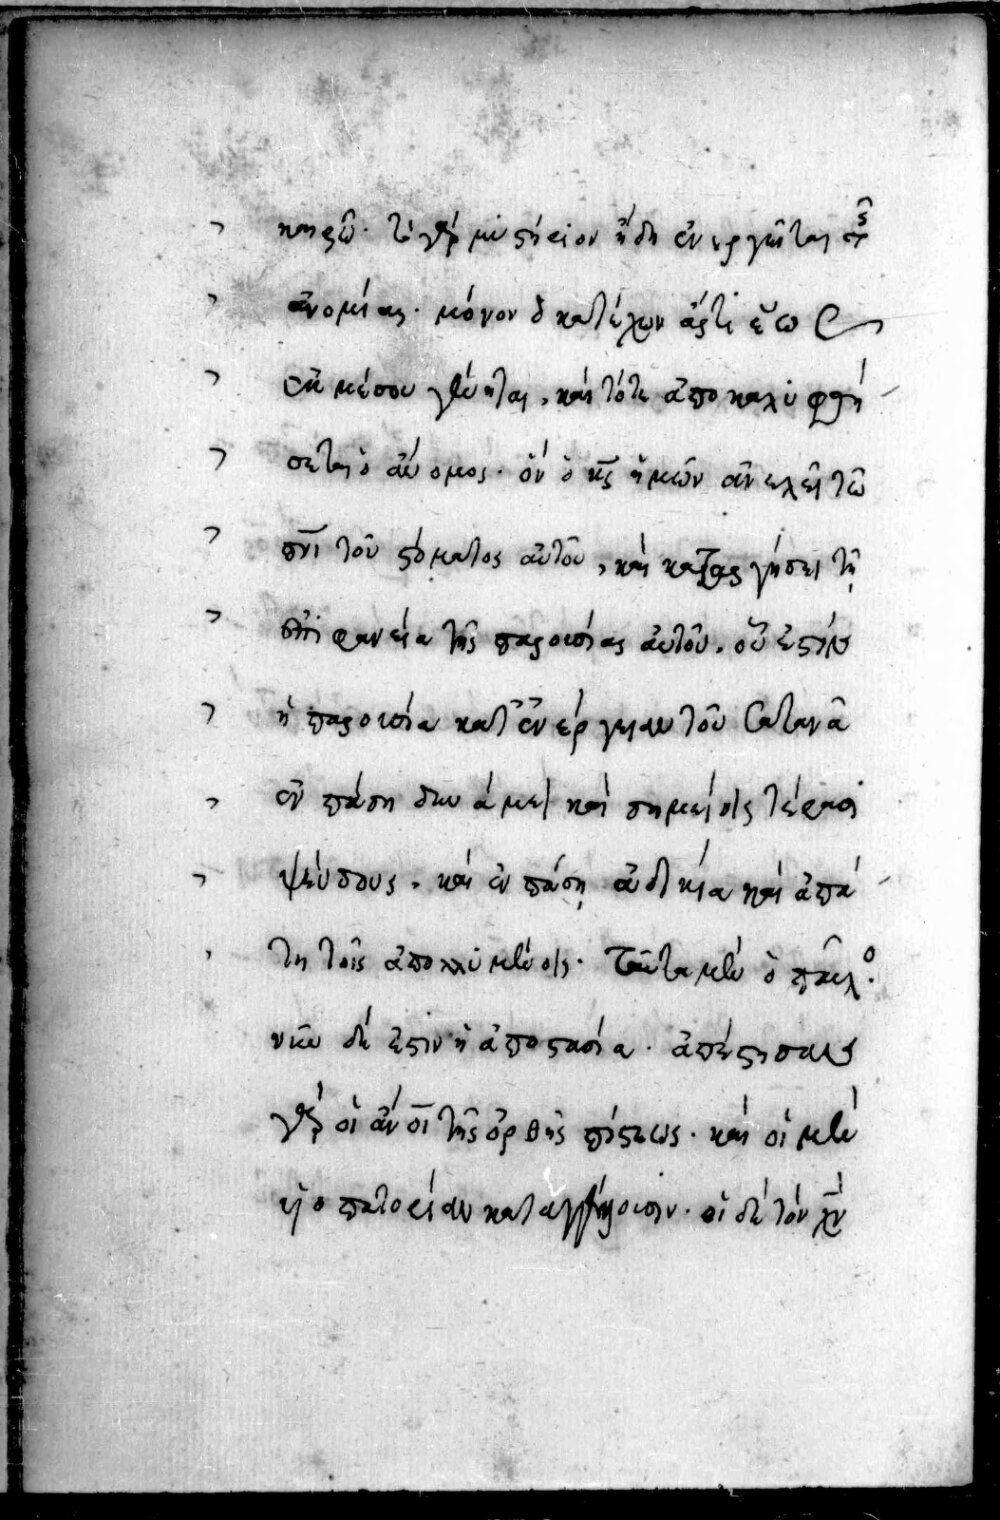 καιρῶ. τὸ γὰρ μυστήριον ἤδη ἐνεργεῖται τῆς
ἀνομίας. μόνον ὁ κατέχων ἄρτι ἕως
ἐκ μέσου γένηται, καὶ τότε ἀποκαλυφθή
σεται ὁ ἄνομος. ὃν ὁ κς ἡμῶν ἀνελεῖ τῶ
πνι τοῦ στόματος αὐτοῦ, καὶ καταργήσει τῇ
ἐπιφανεία τῆς παρουσίας αὐτοῦ. οὗ ἐστὶν
ἡ παρουσία κατ' ἐνέργειαν τοῦ Σατανᾶ
ἐν πάση δυνάμει καὶ σημείοις τέρασι
ψεύδους. καὶ ἐν πάσῃ ἀδικία καὶ ἀπά
τη τοῖς ἀπολλυμένοις. Ταῦτα μὲν ὁ παῦλος.
νῦν δέ ἐστιν ἡ ἀποστασία. ἀπέστησαν
γὰρ οἱ ἄνοι τῆς ὀρθῆς πίστεως. καὶ οἱ μὲν
υἱοπατορίαν καταγγέλουσιν. οἱ δὲ τὸν χν